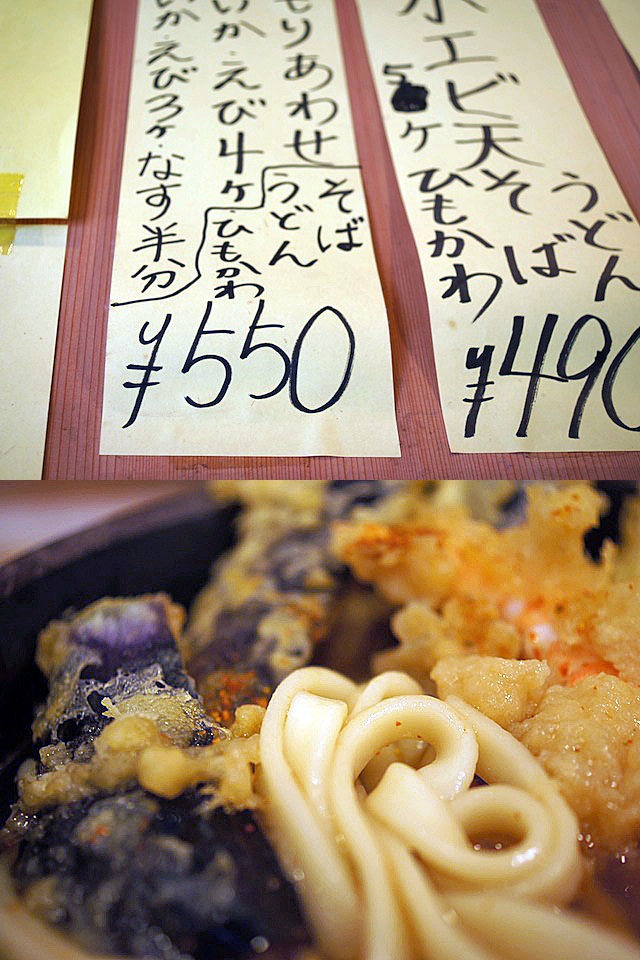 小エビ天
5ケ
うどん
そば
ひもかわ
¥490
もりあわせ
そば
うどん
いか・えび4ケ
ひもかわ
いか・えび3ケ・なす半分
¥550